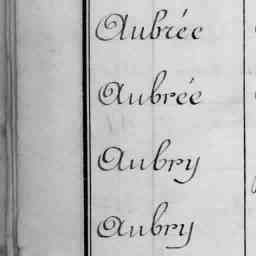 Aubrée
Aubrée
Aubry
Aubry